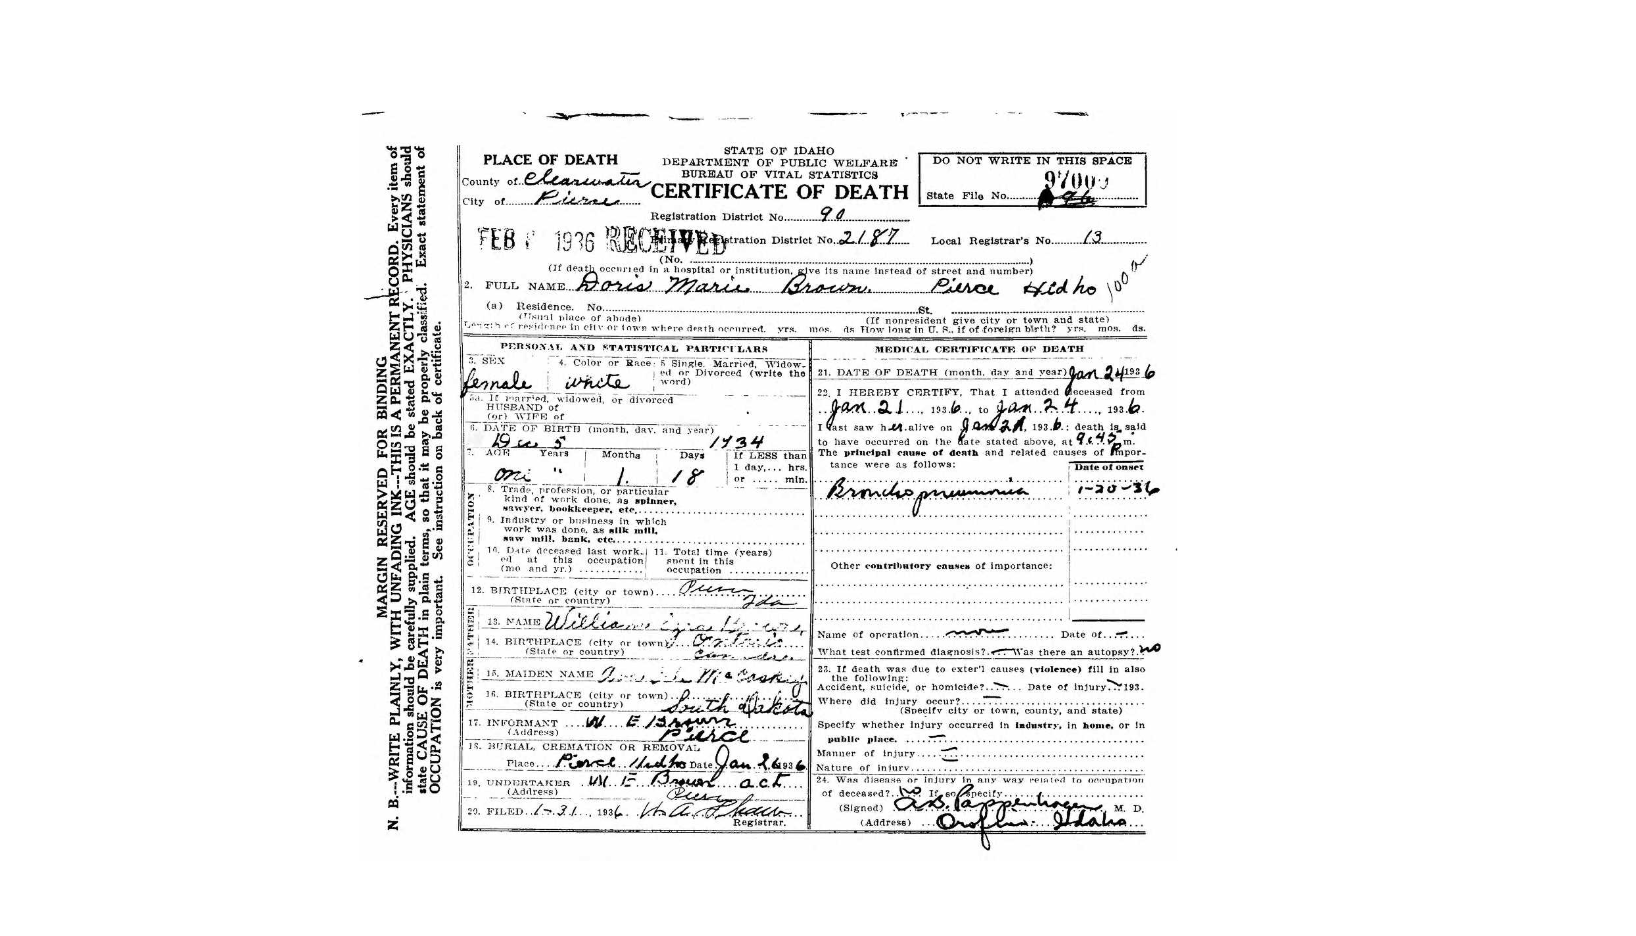 MARGIN RESERVED FOR BINDING
N. B.---WRITE PLAINLY, WITH UNFADING INK---THIS IS A PERMANENT RECORD. Every item of
information should be carefully supplied. AGE should be stated EXACTLY. PHYSICIANS should
state CAUSE OF DEATH in plain terms, so that it may be properly classified. Exact statement of
OCCUPATION is very important. See instruction on back of certificate.
STATE OF IDAHO
DEPARTMENT OF PUBLIC WELFARE
BUREAU OF VITAL STATISTICS
CERTIFICATE OF DEATH
PLACE OF DEATH
County of Clearwater
City of Pierce
DO NOT WRITE IN THIS SPACE
State File No.
Registration District No. 90
FEB 1936 RECEIVED
Registration District No. 2187 Local Registrar's No. 13
(No. )
(If death occurred in a hospital or institution, give its name instead of street and number)
2. FULL NAME Doris Marie Brown. Pierce Idaho
(a) Residence. No. St.
(Usual place of abode) (If nonresident give city or town and state)
Length of residence in city or town where death occurred. yrs. mos. ds How long in U. S., if of foreign birth? yrs. mos. ds.
PERSONAL AND STATISTICAL PARTICULARS
3. SEX female
4. Color or Race: white
5 Single, Married, Widowed or Divorced (write the word)
5a. If married, widowed, or divorced
HUSBAND of
(or) WIFE of
6. DATE OF BIRTH (month, day, and year)
Dec 5 1934
7. AGE Years Months Days If LESS than
1 day,... hrs.
or ..... min.
one " 1. 18
OCCUPATION
8. Trade, profession, or particular
kind of work done, as spinner,
sawyer, bookkeeper, etc.
9. Industry or business in which
work was done, as silk mill,
saw mill, bank, etc.
10. Date deceased last worked at this occupation (mo and yr.)
11. Total time (years) spent in this occupation
12. BIRTHPLACE (city or town) Pierce
(State or country) Ida
FATHER
13. NAME William
14. BIRTHPLACE (city or town) Ontario
(State or country) Canada
MOTHER
15. MAIDEN NAME
16. BIRTHPLACE (city or town)
(State or country) South Dakota
17. INFORMANT W E Brown
(Address) Pierce
18. BURIAL, CREMATION OR REMOVAL
Place Pierce Idaho Date Jan 26 1936
19. UNDERTAKER W. E Brown act
(Address) Pierce
20. FILED 1-31, 1936
Registrar.
MEDICAL CERTIFICATE OF DEATH
21. DATE OF DEATH (month, day and year) Jan 24 1936
22. I HEREBY CERTIFY, That I attended deceased from
Jan. 21, 1936, to Jan. 24, 1936.
I last saw her alive on Jan 21, 1936.; death is said
to have occurred on the date stated above, at 9:45 p.m.
The principal cause of death and related causes of importance were as follows:
Date of onset
Broncho pneumonia 1-20-36
Other contributory causes of importance:
Name of operation none Date of
What test confirmed diagnosis? Was there an autopsy? no
23. If death was due to exter'l causes (violence) fill in also
the following:
Accident, suicide, or homicide? Date of injury 193.
Where did injury occur?
(Specify city or town, county, and state)
Specify whether injury occurred in industry, in home, or in
public place.
Manner of injury
Nature of injury
24. Was disease or injury in any way related to occupation
of deceased? no If so, specify
(Signed) Pappenhagen, M. D.
(Address) Orofino Idaho